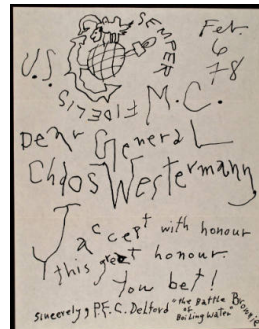 SEMPER
FIDELIS
Feb.
6
78
U.S.
M.C.
Dear General
Chaos Westermann
I accept with honour
this great honour.
You bet!
Sincerely, P.F.C. Deltord "the Battle of Boiling Water"